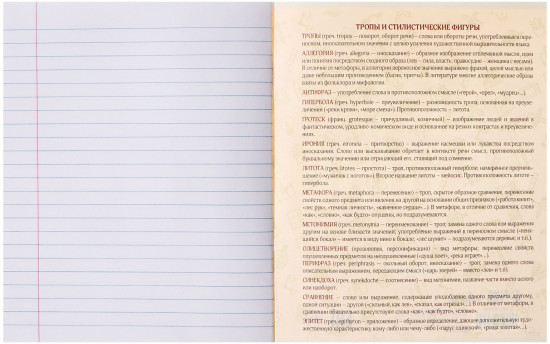 ТРОПЫ И СТИЛИСТИЧЕСКИЕ ФИГУРЫ
ТРОПЫ (греч. tropos — поворот, оборот речи) — слова или обороты речи, употребляемые в пере-
носном, иносказательном значении с целью усиления художественной выразительности языка.
АЛЛЕГОРИЯ (греч. allegoria — иносказание) — образное изображение отвлечённой мысли, идеи
или понятия посредством сходного образа (лев – сила, власть; правосудие – женщина с весами).
В отличие от метафоры, в аллегории переносное значение выражено фразой, целой мыслью или
даже небольшим произведением (басня, притча). В литературе многие аллегорические образы
взяты из фольклора и мифологии.
АНТИФРАЗ — употребление слова в противоположном смысле («герой», «орел», «мудрец»...).
ГИПЕРБОЛА (греч. hyperbole — преувеличение) — разновидность тропа, основанная на преуве-
личении («реки крови», «море смеха»). Противоположность – литота.
ГРОТЕСК (франц. grotesque — причудливый, комичный) — изображение людей и явлений в
фантастическом, уродливо-комическом виде и основанное на резких контрастах и преувеличе-
ниях.
ИРОНИЯ (греч. eironeia — притворство) — выражение насмешки или лукавства посредством
иносказания. Слово или высказывание обретает в контексте речи смысл, противоположный
буквальному значению или отрицающий его, ставящий под сомнение.
ЛИТОТА (греч. litotes — простота) — троп, противоположный гиперболе; намеренное преумень-
шение («мужичок с ноготок»). Второе название литоты – мейосис. Противоположность литоте –
гипербола.
МЕТАФОРА (греч. metaphora — перенесение) — троп, скрытое образное сравнение, перенесение
свойств одного предмета или явления на другой на основании общих признаков («работа кипит»,
«лес рук», «темная личность», «каменное сердце»...). В метафоре, в отличие от сравнения, слова
«как», «словно», «как будто» опущены, но подразумеваются.
МЕТОНИМИЯ (греч. metonymia — переименование) — троп; замена одного слова или выражения
другим на основе близости значений; употребление выражений в переносном смысле («пеня-
щийся бокал» — имеется в виду вино в бокале; «лес шумит» — подразумеваются деревья; и т.п.).
ОЛИЦЕТВОРЕНИЕ (прозопопея, персонификация) — вид метафоры; перенесение свойств
одушевленных предметов на неодушевленные («душа поет», «река играет»...).
ПЕРИФРАЗ (греч. periphrasis — окольный оборот, иносказание) — троп; замена одного слова
описательным выражением, передающим смысл («царь зверей» — вместо «лев» и т.п.).
СИНЕКДОХА (греч. synekdoche — соотнесение) — вид метонимии, название части вместо целого
или наоборот.
СРАВНЕНИЕ — слово или выражение, содержащее уподобление одного предмета другому,
одной ситуации – другой («сильный как лев», «сказал, как отрезал»...). В отличие от метафоры, в
сравнении обязательно присутствуют слова «как», «как будто», «словно».
ЭПИТЕТ (греч. epitheton — приложение) — образное определение, дающее дополнительную худо-
жественную характеристику кому-либо или чему-либо («парус одинокий», «роща золотая»...).